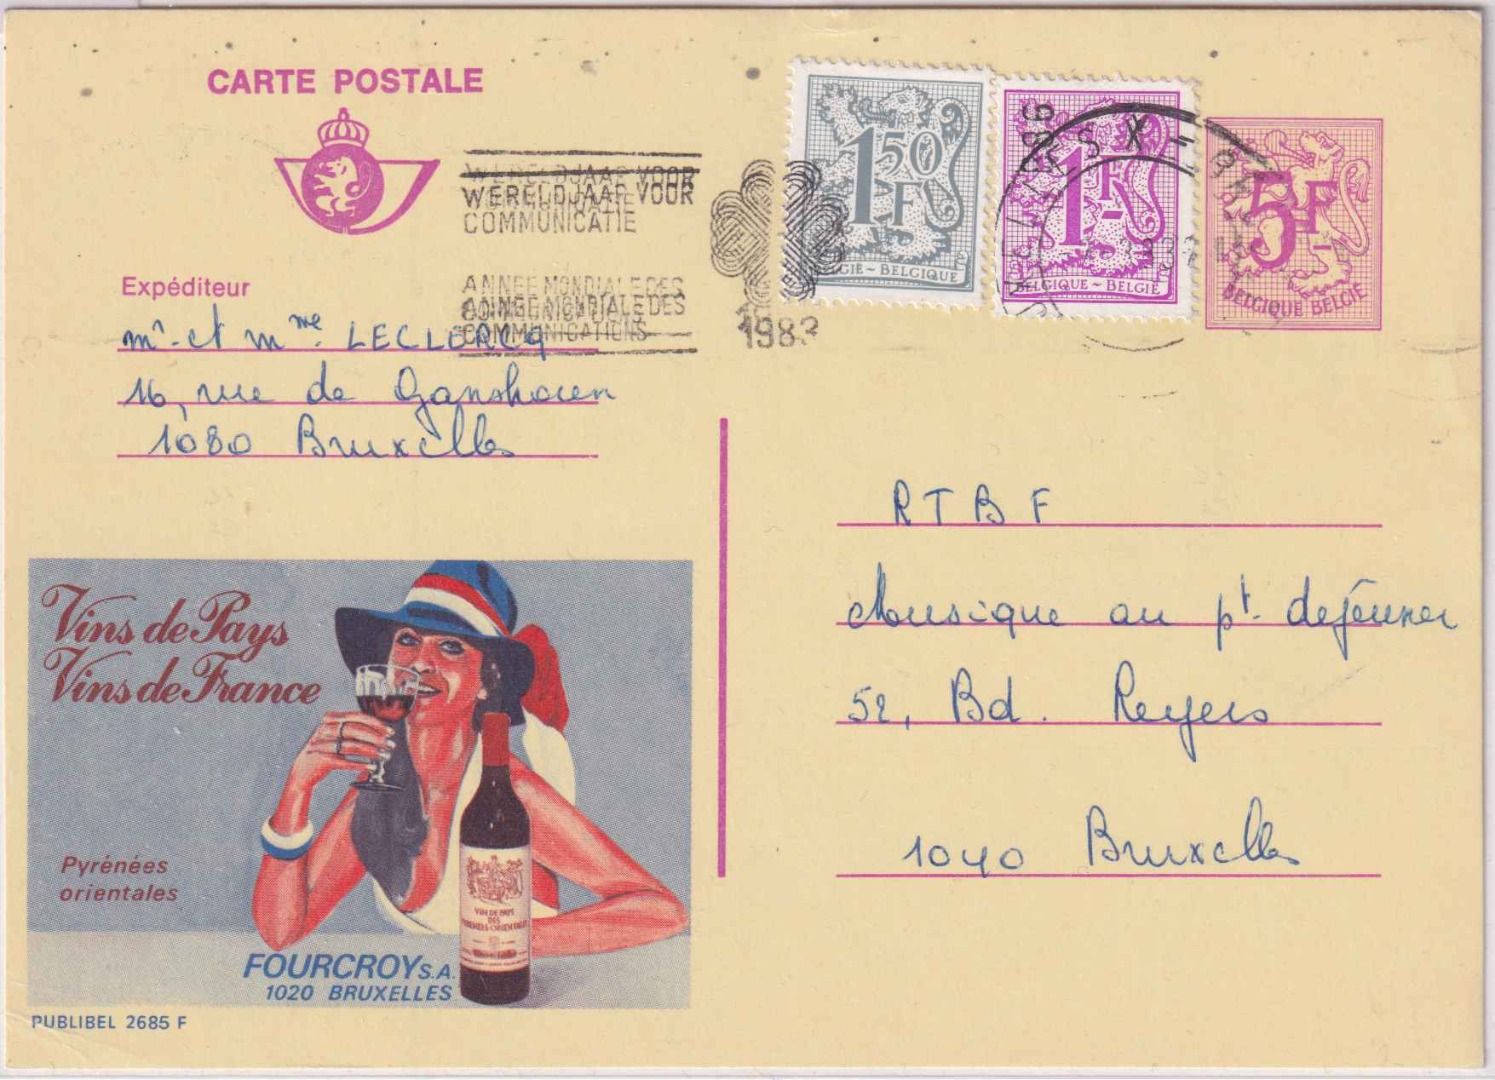 CARTE POSTALE
WERELDJAAR VOOR
COMMUNICATIE
ANNEE MONDIALE DES
COMMUNICATIONS
1983
1 50
F
BELGIË ~ BELGIQUE
1 F
BELGIQUE ~ BELGIË
5F
BELGIQUE BELGIË
Expéditeur
Mr. et Mme LECLERCQ
16, rue de Ganshoren
1080 Bruxelles
RTBF
Musique au pt. dejeuner
52, Bd. Reyers
1040 Bruxelles
Vins de Pays
Vins de France
Pyrénées
orientales
VIN DE PAYS
DES
PYRENEES-ORIENTALES
FOURCROY S.A.
1020 BRUXELLES
PUBLIBEL 2685 F